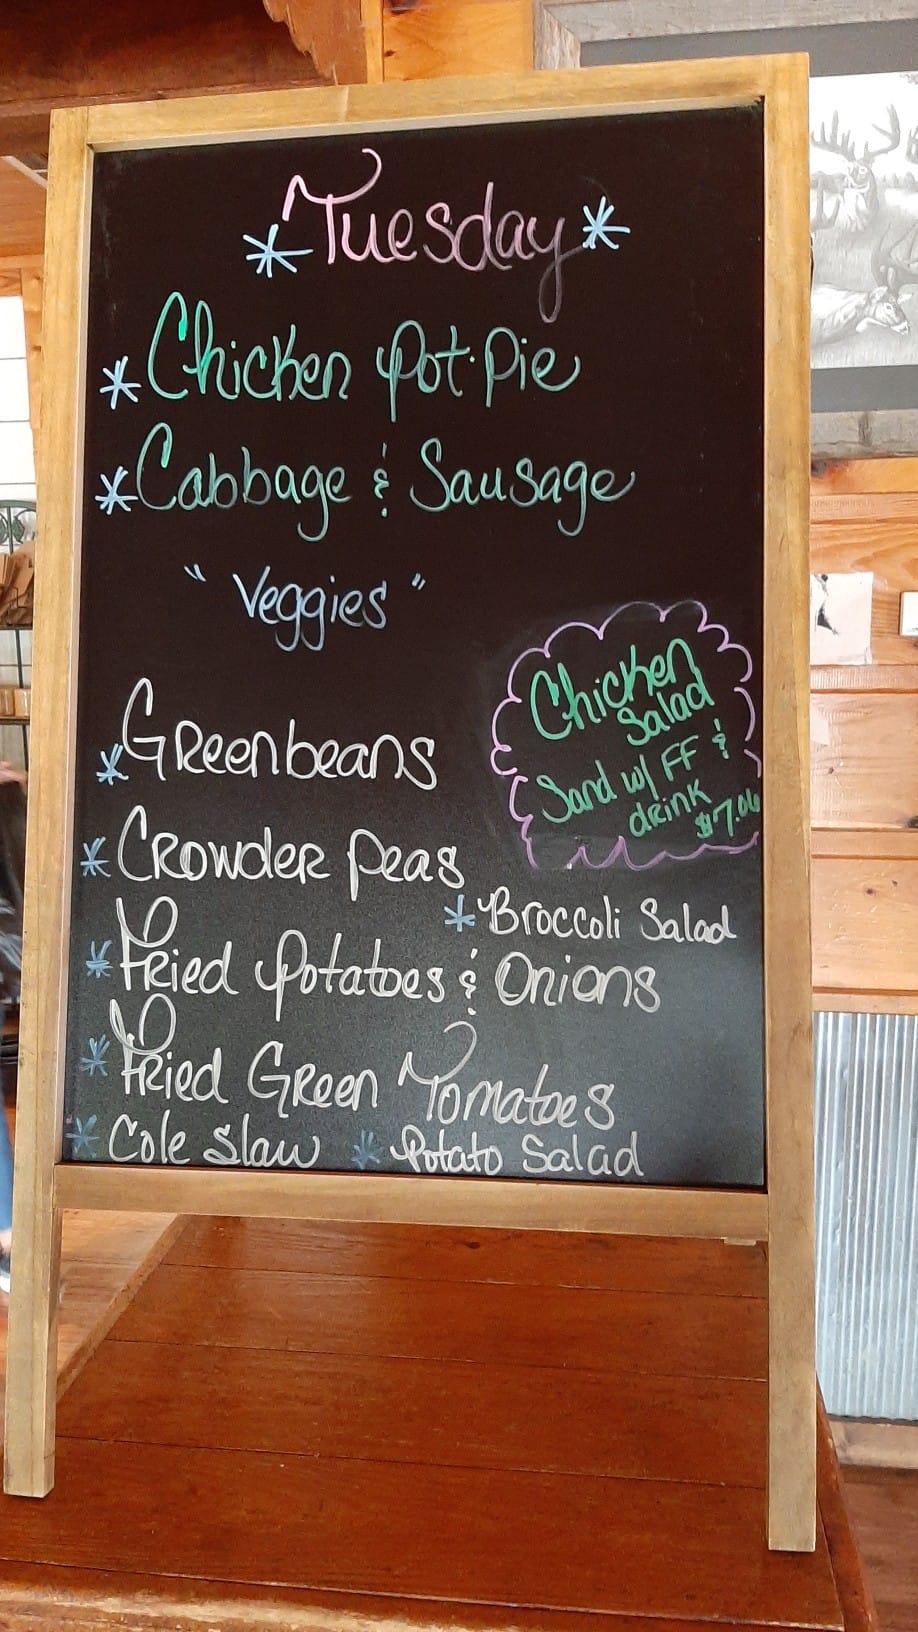 * Tuesday *
* Chicken Pot.Pie
* Cabbage & Sausage
"Veggies"
* Greenbeans
* Crowder Peas
Chicken
Salad
Sand w/ FF &
drink
$7.06
* Broccoli Salad
* Fried Potatoes & Onions
* Fried Green Tomatoes
* Cole Slaw * Potato Salad